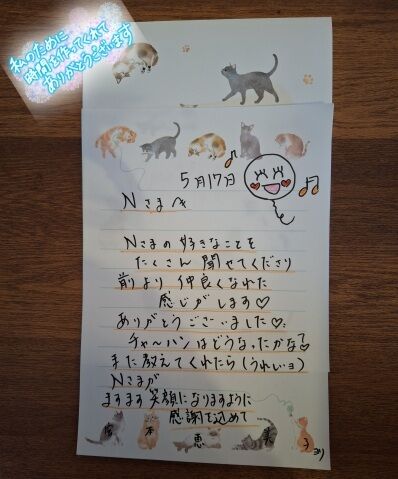 私のために
時間を作ってくれて
ありがとうございます
5月17日
Nさまへ
Nさまの好きなことを
たくさん聞せてくださり
前より仲良くなれた
感じがします♡
ありがとうございました♡
チャーハンはどうなったかな?
また教えてくれたら(うれしいョ)
Nさまが
ますます笑顔になりますように
感謝を込めて
本 恵 美 子より